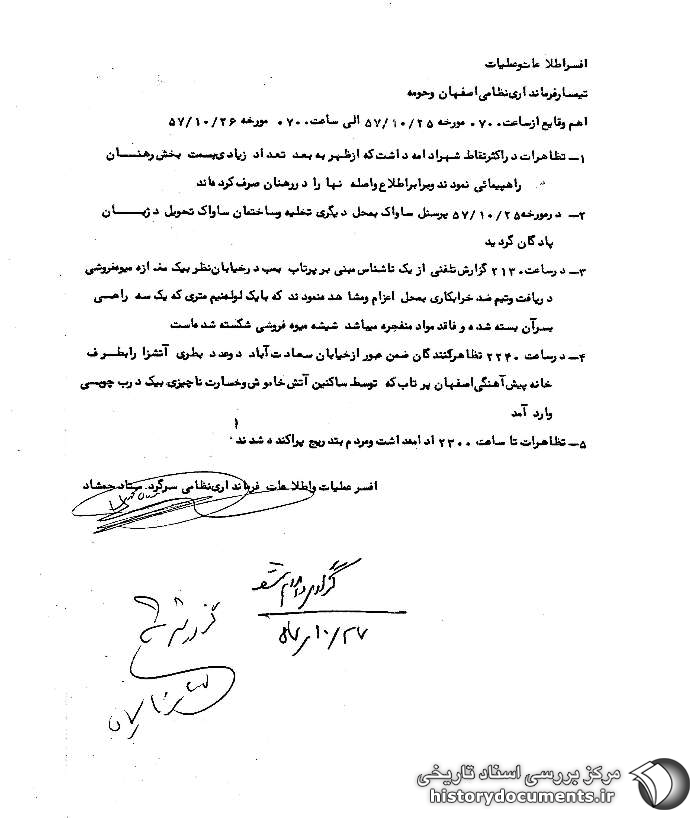 افسراطلاعات وعملیات
تیمسارفرمانداری نظامی اصفهان وحومه
اهم وقایع ازساعت ۰۷۰۰ مورخه ۵۷/۱۰/۲۵ الی ساعت ۰۷۰۰ مورخه ۵۷/۱۰/۲۶
۱ـ تظاهرات دراکثرنقاط شهرادامه داشت که ازظهر به بعد تعداد زیادی بسمت بخش رهنـــان
راهپیمائی نمودند وبرابراطلاع واصله نها را دررهنان صرف کرده اند
۲ـ درمورخه ۵۷/۱۰/۲۵ پرسنل ساواک بمحل دیگری تخلیه وساختمان ساواک تحویل دژبـــان
پادگان گردید
۳ـ درساعت ۲۱۳۰ گزارش تلفنی از یک ناشناس مبنی بر پرتاب بمب درخیابان نظر بیک مغازه میوه فروشی
دریافت وتیم ضد خرابکاری بمحل اعزام ومشاهده نمودند که بایک لوله نیم متری که یک سه راهـی
بسرآن بسته شده و فاقد مواد منفجره میباشد شیشه میوه فروشی شکسته شده است
۴ـ درساعت ۲۲۴۰ تظاهرکنندگان ضمن عبور ازخیابان سعادت آباد دوعدد بطری آتشزا رابطـرف
خانه پیش آهنگی اصفهان پرتاب که توسط ساکنین آتش خاموش وخسارت ناچیزی بیک درب چوبـی
وارد آمد
۵ـ تظاهرات تا ساعت ۲۳۰۰ ادامه داشت ومردم بتدریج پراکنده شدند
افسر عملیات واطلاعات فرمانداری نظامی سرگرد ستاد جمشاد
۵۷/۱۰/۲۷
گزارش
مرکز بررسی اسناد تاریخی
historydocuments.ir